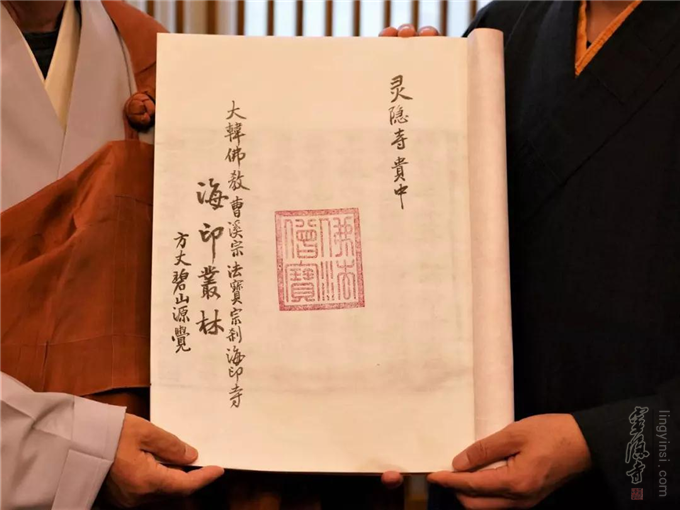 灵隐寺貴中
佛法
僧寶
大韓佛教曹溪宗法寶宗刹海印寺
海印叢林
方丈碧山源覺
lingyinsi.com
靈隱寺